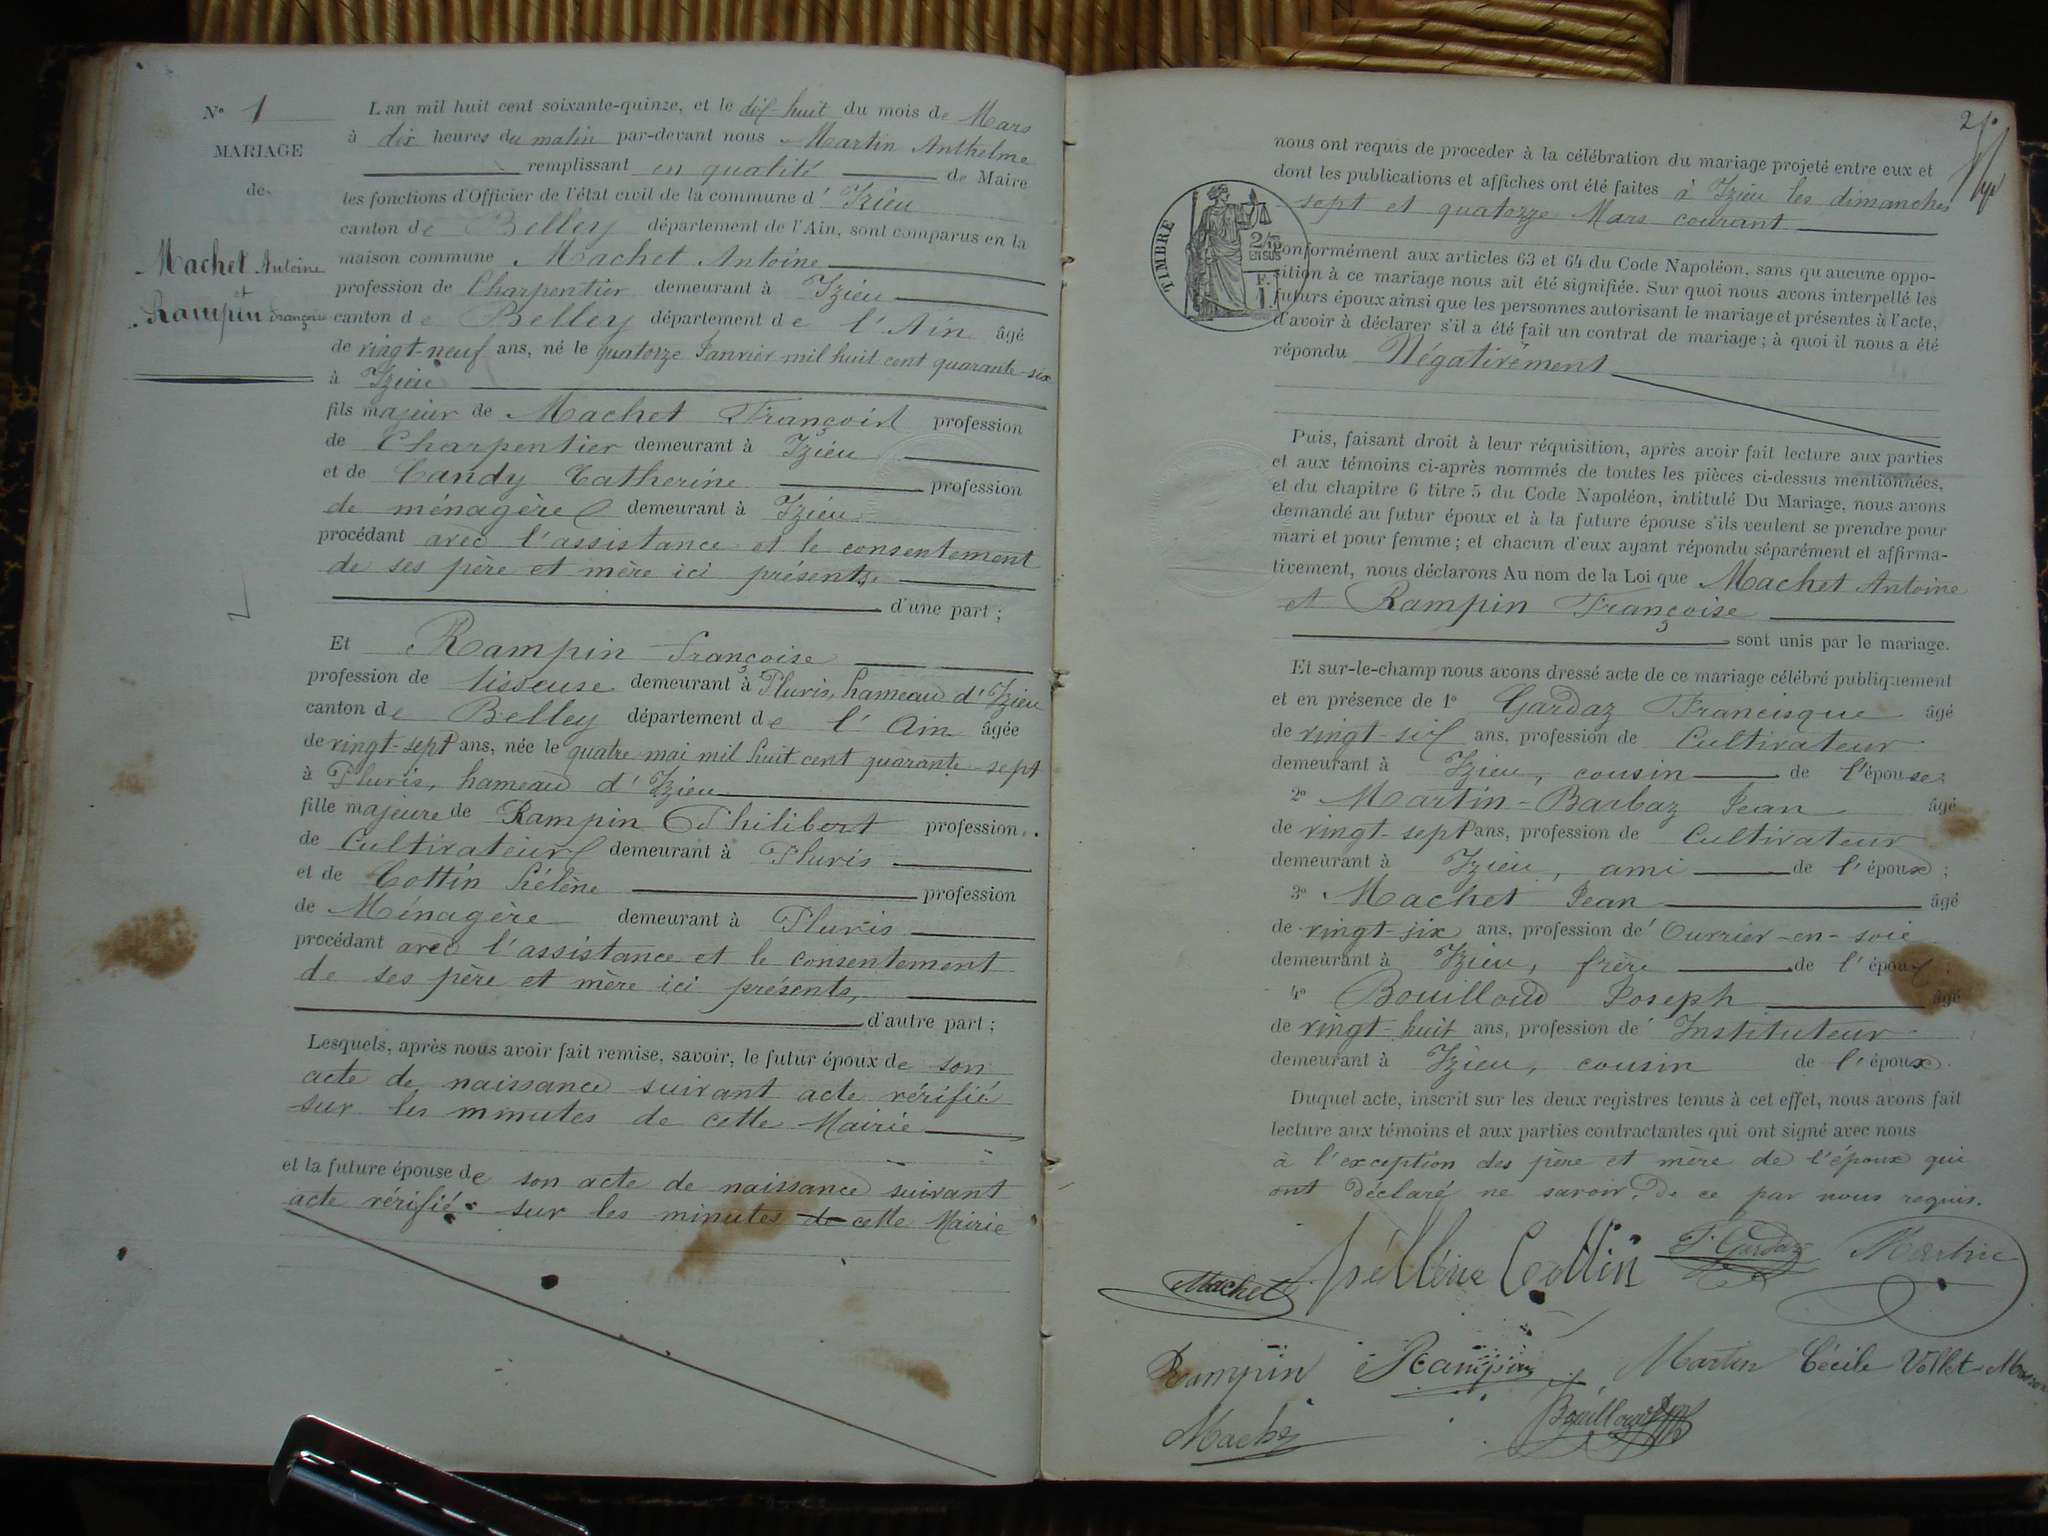 N° 1
MARIAGE
de
Machet Antoine
et
Rampin Françoise
L'an mil huit cent soixante-quinze, et le dix-huit du mois de Mars
à dix heures du matin par-devant nous Martin Anthelme
remplissant en qualité de Maire
les fonctions d'Officier de l'état civil de la commune d'Izieu
canton de Belley département de l'Ain, sont comparus en la
maison commune Machet Antoine
profession de Charpentier demeurant à Izieu
canton de Belley département de l'Ain âgé
de vingt-neuf ans, né le quatorze Janvier mil huit cent quarante-six
à Izieu
fils majeur de Machet François profession
de Charpentier demeurant à Izieu
et de Candy Catherine profession
de ménagère demeurant à Izieu
procédant avec l'assistance et le consentement
de ses père et mère ici présents
d'une part ;
Et Rampin Françoise
profession de tisseuse demeurant à Pluvis, hameau d'Izieu
canton de Belley département de l'Ain âgée
de vingt-sept ans, née le quatre mai mil huit cent quarante-sept
à Pluvis, hameau d'Izieu
fille majeure de Rampin Philibert profession
de Cultivateur demeurant à Pluvis
et de Cottin hélène profession
de Ménagère demeurant à Pluvis
procédant avec l'assistance et le consentement
de ses père et mère ici présents,
d'autre part ;
Lesquels, après nous avoir fait remise, savoir, le futur époux de son
acte de naissance suivant acte vérifié
sur les minutes de cette Mairie
et la future épouse de son acte de naissance suivant
acte vérifié sur les minutes de cette Mairie
2
nous ont requis de procéder à la célébration du mariage projeté entre eux et
dont les publications et affiches ont été faites à Izieu les dimanches
sept et quatorze Mars courant
TIMBRE
2/10
EN SUS
F.
1.
conformément aux articles 63 et 64 du Code Napoléon, sans qu'aucune oppo-
sition à ce mariage nous ait été signifiée. Sur quoi nous avons interpellé les
futurs époux ainsi que les personnes autorisant le mariage et présentes à l'acte,
d'avoir à déclarer s'il a été fait un contrat de mariage ; à quoi il nous a été
répondu Négativement
Puis, faisant droit à leur réquisition, après avoir fait lecture aux parties
et aux témoins ci-après nommés de toutes les pièces ci-dessus mentionnées,
et du chapitre 6 titre 5 du Code Napoléon, intitulé Du Mariage, nous avons
demandé au futur époux et à la future épouse s'ils veulent se prendre pour
mari et pour femme ; et chacun d'eux ayant répondu séparément et affirma-
tivement, nous déclarons Au nom de la Loi que Machet Antoine
et Rampin Françoise
sont unis par le mariage.
Et sur-le-champ nous avons dressé acte de ce mariage célébré publiquement
et en présence de 1° Gardaz Francisque âgé
de vingt-six ans, profession de Cultivateur
demeurant à Izieu, cousin de l'épouse
2° Martin-Barbaz Jean âgé
de vingt-sept ans, profession de Cultivateur
demeurant à Izieu, ami de l'époux ;
3° Machet Jean âgé
de vingt-six ans, profession d'Ouvrier-en-soie
demeurant à Izieu, frère de l'époux
4° Bouilloud Joseph âgé
de vingt-huit ans, profession d'Instituteur
demeurant à Izieu, cousin de l'époux.
Duquel acte, inscrit sur les deux registres tenus à cet effet, nous avons fait
lecture aux témoins et aux parties contractantes qui ont signé avec nous
à l'exception des père et mère de l'époux qui
ont déclaré ne savoir, de ce par nous requis.
Machet hélléne Cottin F. Gardaz Martin
Rampin Rampin Martin Cécile Vollet
Machet Bouilloud